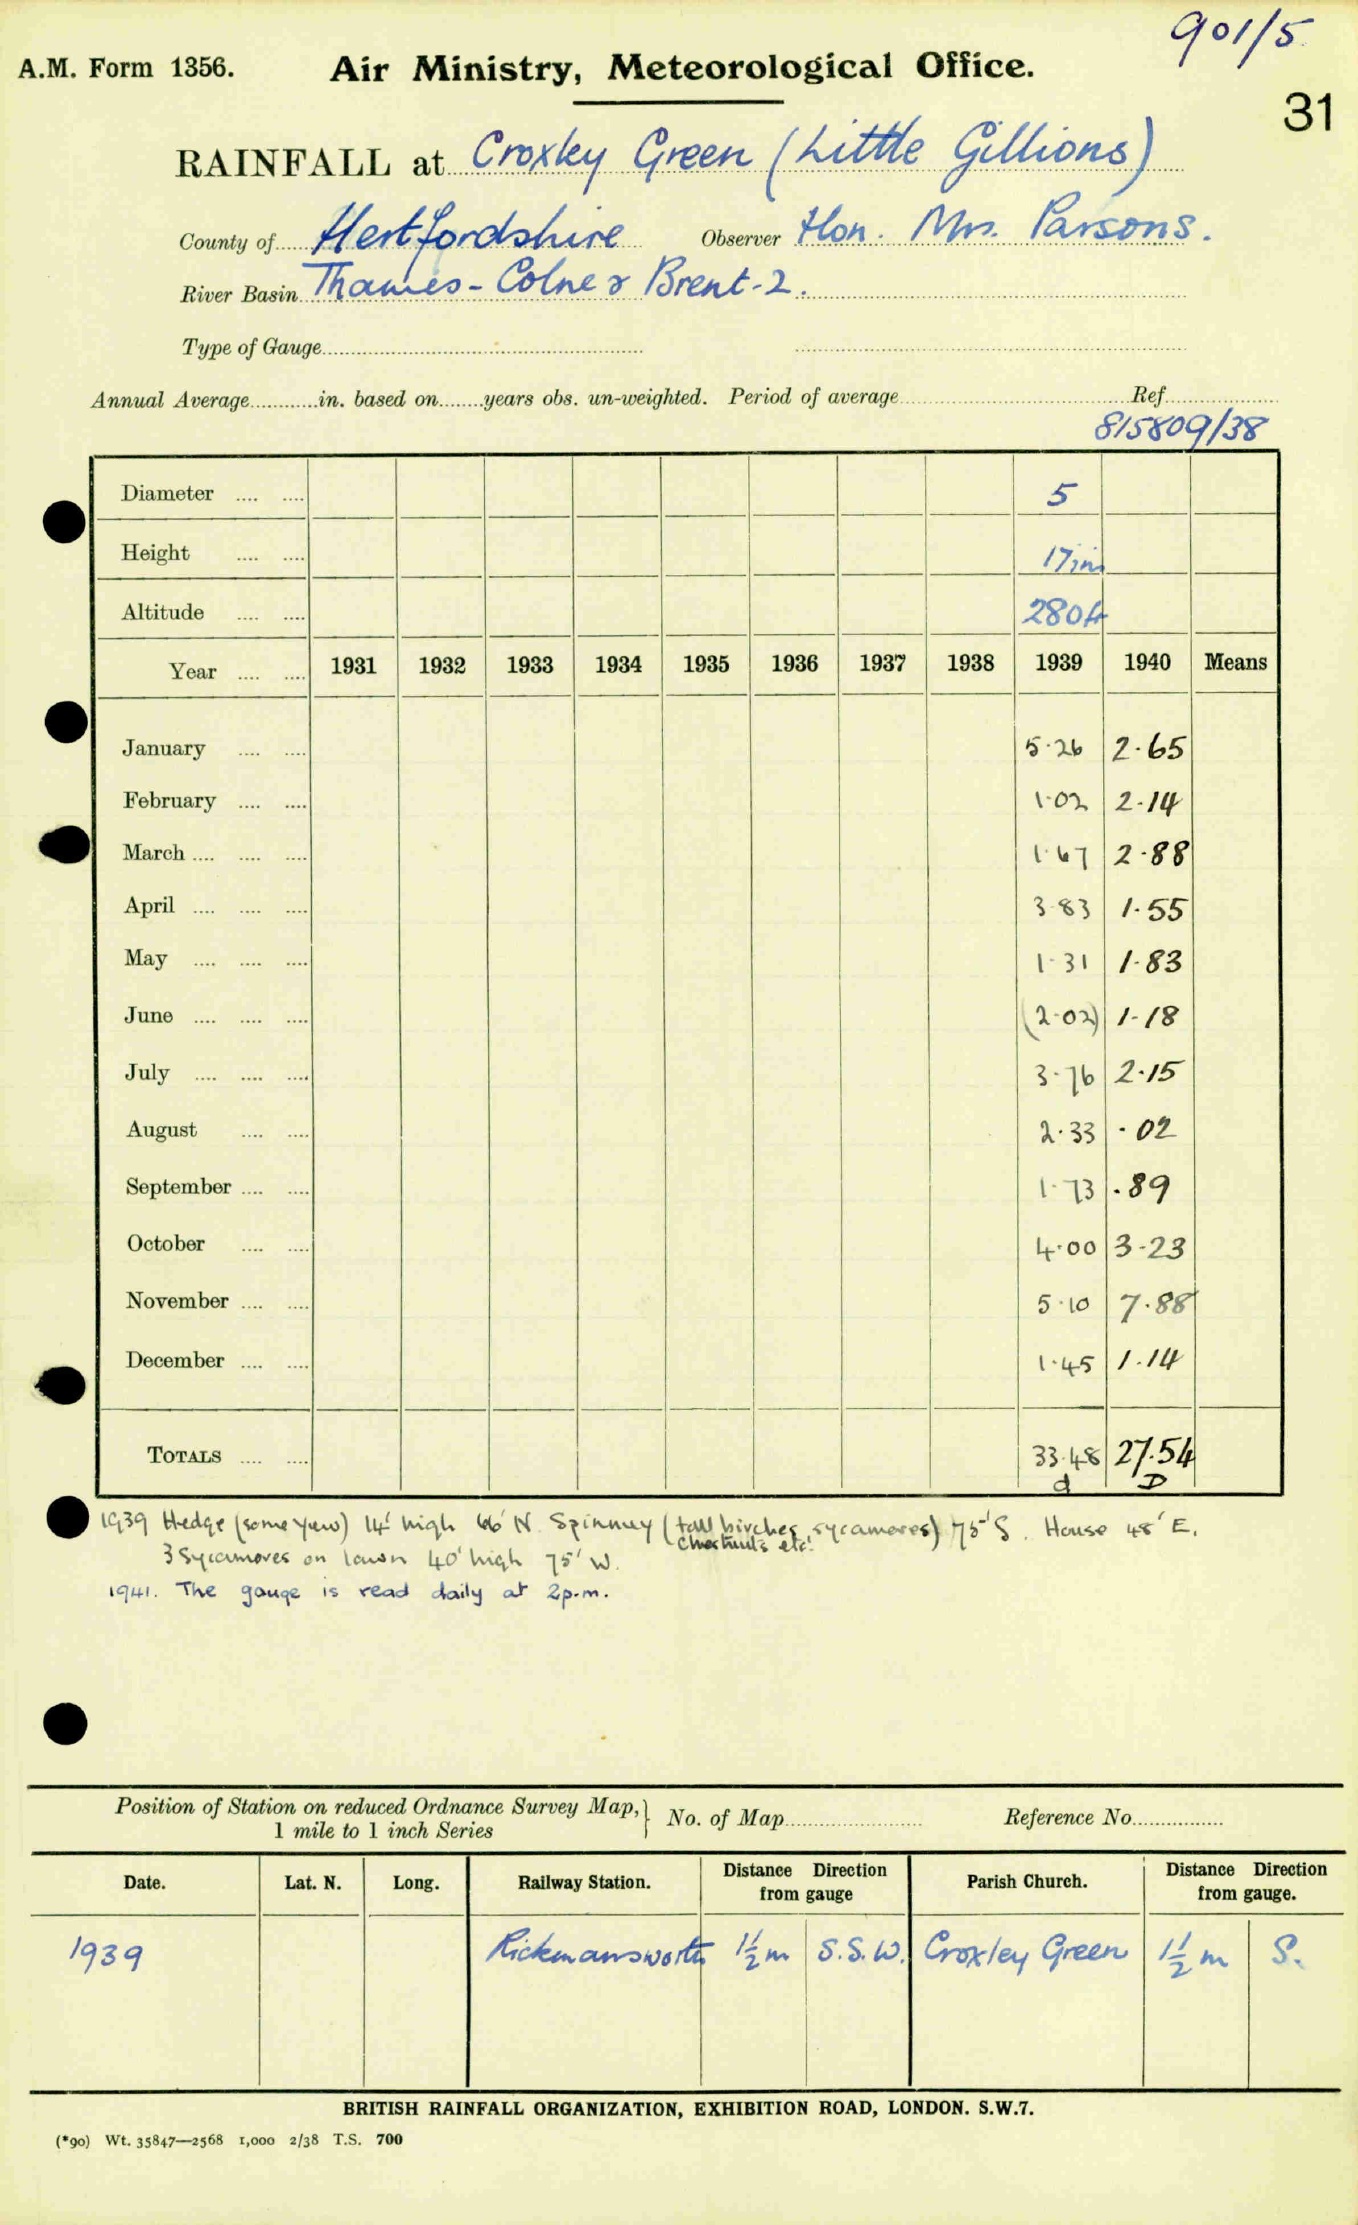 901/5
A.M. Form 1356. Air Ministry, Meteorological Office.
31
RAINFALL at Croxley Green (Little Gillions)
County of Hertfordshire Observer Hon. Mrs. Parsons.
River Basin Thames - Colne & Brent-2.
Type of Gauge
Annual Average in. based on years obs. un-weighted. Period of average Ref.
815809/38
Diameter .... .... 5
Height .... .... 17in
Altitude .... .... 280ft
Year .... .... 1931 1932 1933 1934 1935 1936 1937 1938 1939 1940 Means
January .... .... 5.26 2.65
February .... .... 1.02 2.14
March .... .... .... 1.67 2.88
April .... .... .... 3.83 1.55
May .... .... .... 1.31 1.83
June .... .... .... (2.02) 1.18
July .... .... .... 3.76 2.15
August .... .... 2.33 .02
September .... .... 1.73 .89
October .... .... 4.00 3.23
November .... .... 5.10 7.88
December .... .... 1.45 1.14
TOTALS .... .... 33.48 27.54
d D
1939 Hedge (some yew) 14' high 66' N. Spinney (tall birches, sycamores) 75' S. House 48' E.
chestnuts etc.
3 Sycamores on lawn 40' high 75' W.
1941. The gauge is read daily at 2p.m.
Position of Station on reduced Ordnance Survey Map, } No. of Map Reference No.
1 mile to 1 inch Series
Date. Lat. N. Long. Railway Station. Distance Direction from gauge Parish Church. Distance Direction from gauge.
1939 Rickmansworth 1½ m S.S.W. Croxley Green 1½ m S.
BRITISH RAINFALL ORGANIZATION, EXHIBITION ROAD, LONDON. S.W.7.
(*90) Wt. 35847—2568 1,000 2/38 T.S. 700